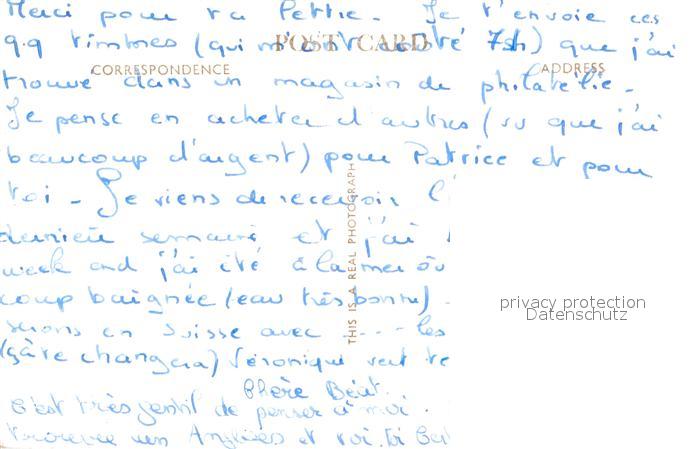 Merci pour ta lettre. Je t'envoie ces
q.q timbres (qui m'ont coûté 7sh) que j'ai
POST CARD
CORRESPONDENCE
ADDRESS
trouvé dans un magasin de philatélie.
Je pense en acheter d'autres (vu que j'ai
beaucoup d'argent) pour Patrice et pour
toi - Je viens de recevoir
THIS IS A REAL PHOTOGRAPH
et j'ai
week end j'ai été à la mer où
coup baignée (eau très bonne).
serons en Suisse avec .... les
(ça te changera) Véronique veut te
privacy protection
Datenschutz
Chère Béat.
c'est très gentil de penser à moi.
et toi